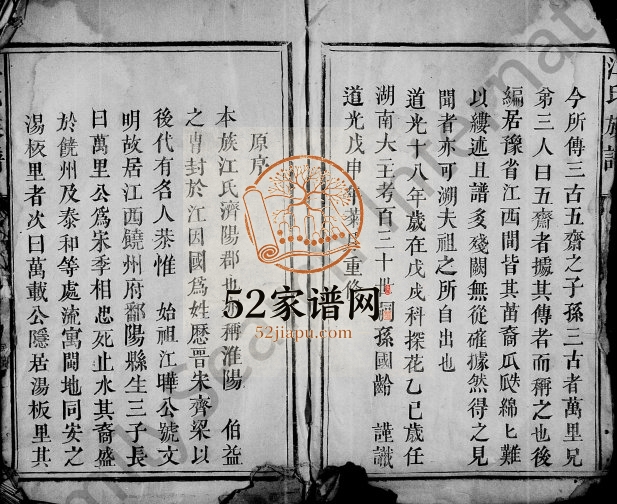 江氏族譜
今所傳三古五齋之子孫三古者萬里兄
弟三人曰五齋者據其傳者而稱之也後
編居豫省江西間皆其苗裔瓜瓞綿匕難
以縷述且譜多殘闕無從確據然得之見
聞者亦可溯夫祖之所自出也
道光十八年歲在戊戌科探花乙巳歲任
湖南大主考百三十世嗣孫國齡 謹識
道光戊申年 重修
原序
本族江氏濟陽郡也 稱淮陽 伯益
之冑封於江因國為姓歷晉宋齊梁以
後代有名人恭惟 始祖江曄公號文
明故居江西饒州府鄱陽縣生三子長
曰萬里公為宋季相忠死止水其裔盛
於饒州及泰和等處流寓閩地同安之
湯板里者次曰萬載公隱居湯板里其
52家谱网
52jiapu.com